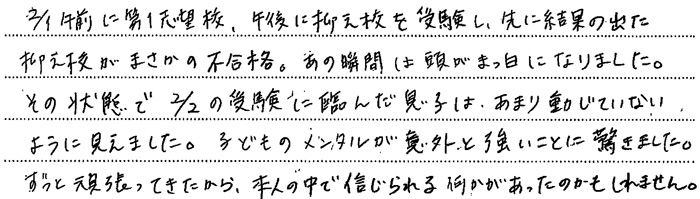 2/1午前に第1志望校、午後に抑え校を受験し、先に結果の出た
抑え校がまさかの不合格。あの瞬間は頭がまっ白になりました。
その状態で2/2の受験に臨んだ息子は、あまり動じていない
ように見えました。子どものメンタルが意外と強いことに驚きました。
ずっと頑張ってきたから、本人の中で信じられる何かがあったのかもしれません。